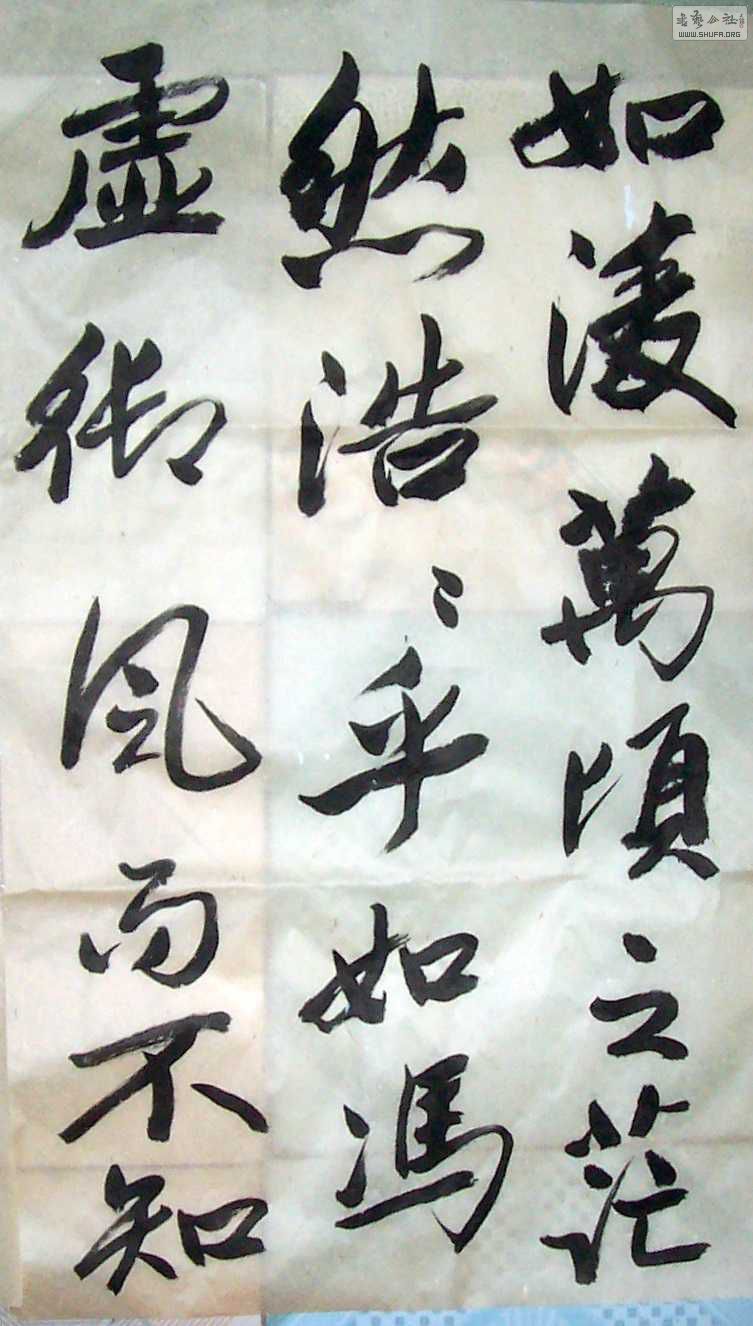 如淩萬頃之茫
然浩〻乎如馮
虛御風而不知
書藝公社
WWW.SHUFA.ORG